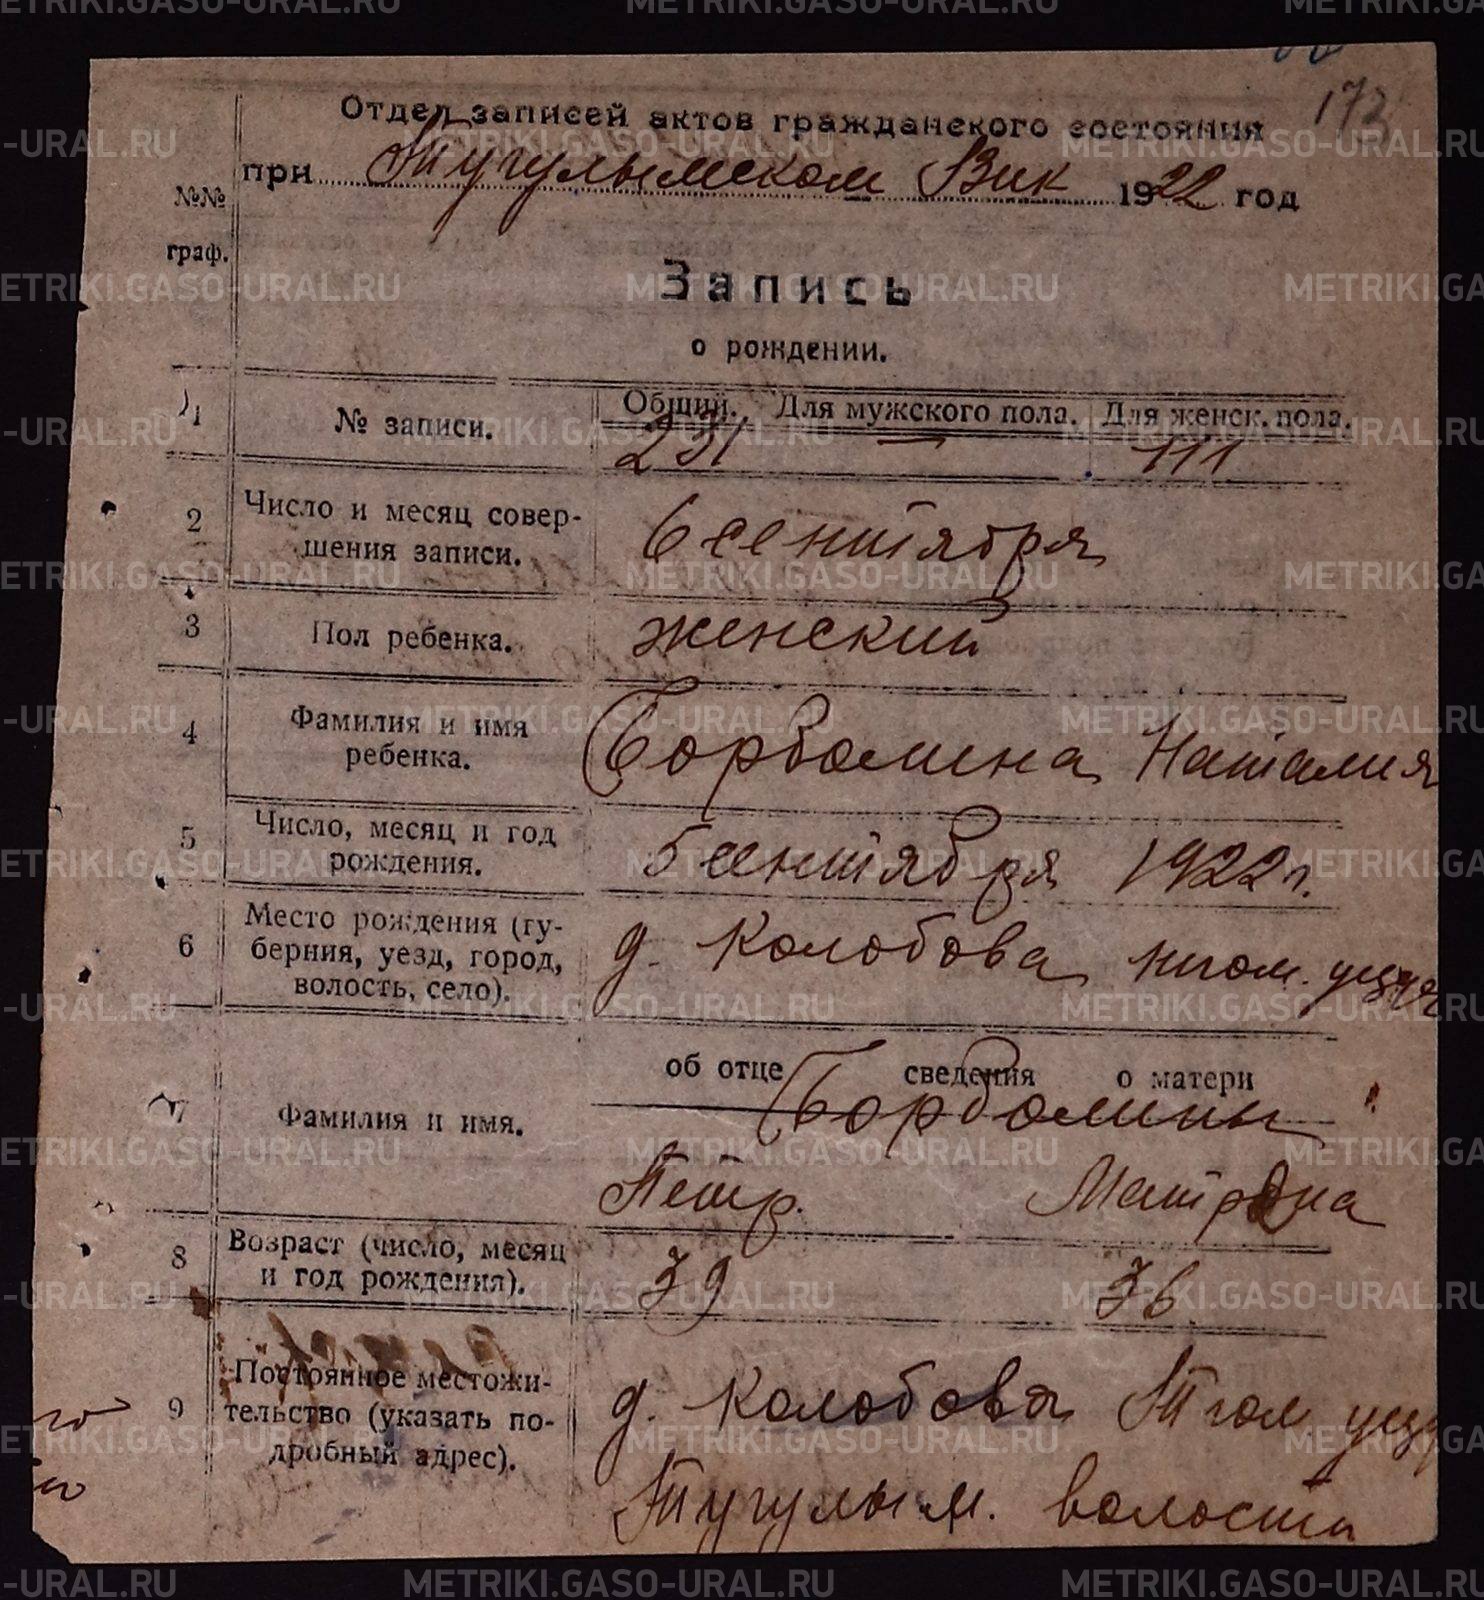 172
Отдел записей актов гражданского состояния
при Тугулымском Вик 1922 год
№№
граф.
Запись
о рождении.
1 № записи. Общий. Для мужского пола. Для женск. пола.
231 — 111
2 Число и месяц совер-
шения записи. 6 сентября
3 Пол ребенка. женский
4 Фамилия и имя
ребенка. Борболина Наталия
5 Число, месяц и год
рождения. 5 сентября 1922 г.
6 Место рождения (гу-
берния, уезд, город,
волость, село). д. Колобова
об отце сведения о матери
7 Фамилия и имя. Борболины
Петр. Матрона
8 Возраст (число, месяц
и год рождения). 39 36
9 Постоянное местожи-
тельство (указать по-
дробный адрес). д. Колобова
Тугулым. волости
METRIKI.GASO-URAL.RU